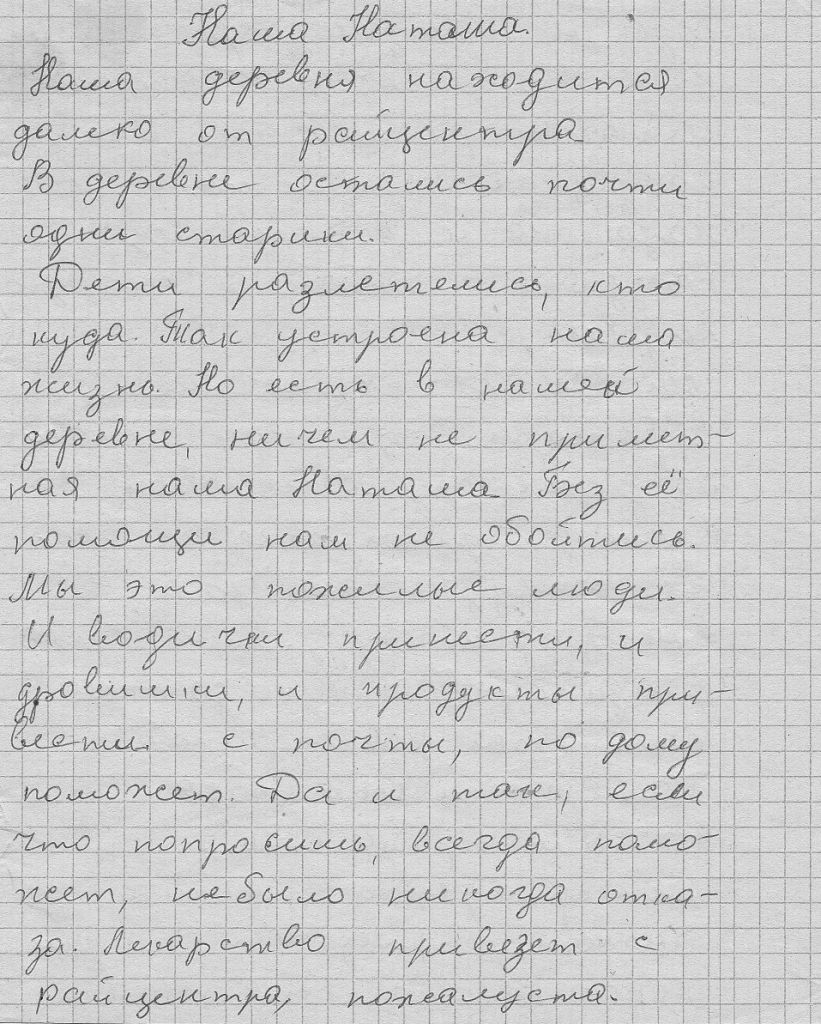 Наша Наташа.
Наша деревня находится
далеко от райцентра
В деревне остались почти
одни старики.
Дети разлетелись, кто
куда. Так устроена наша
жизнь. Но есть в нашей
деревне, ничем не примет-
ная наша Наташа Без её
помощи нам не обойтись.
Мы это пожилые люди.
И водички принести, и
дровишки, и продукты при-
вести с почты, по дому
поможет. Да и так, если
что попросишь, всегда помо-
жет, небыло никогда отка-
за. Лекарство привезет с
райцентра, пожалуста.